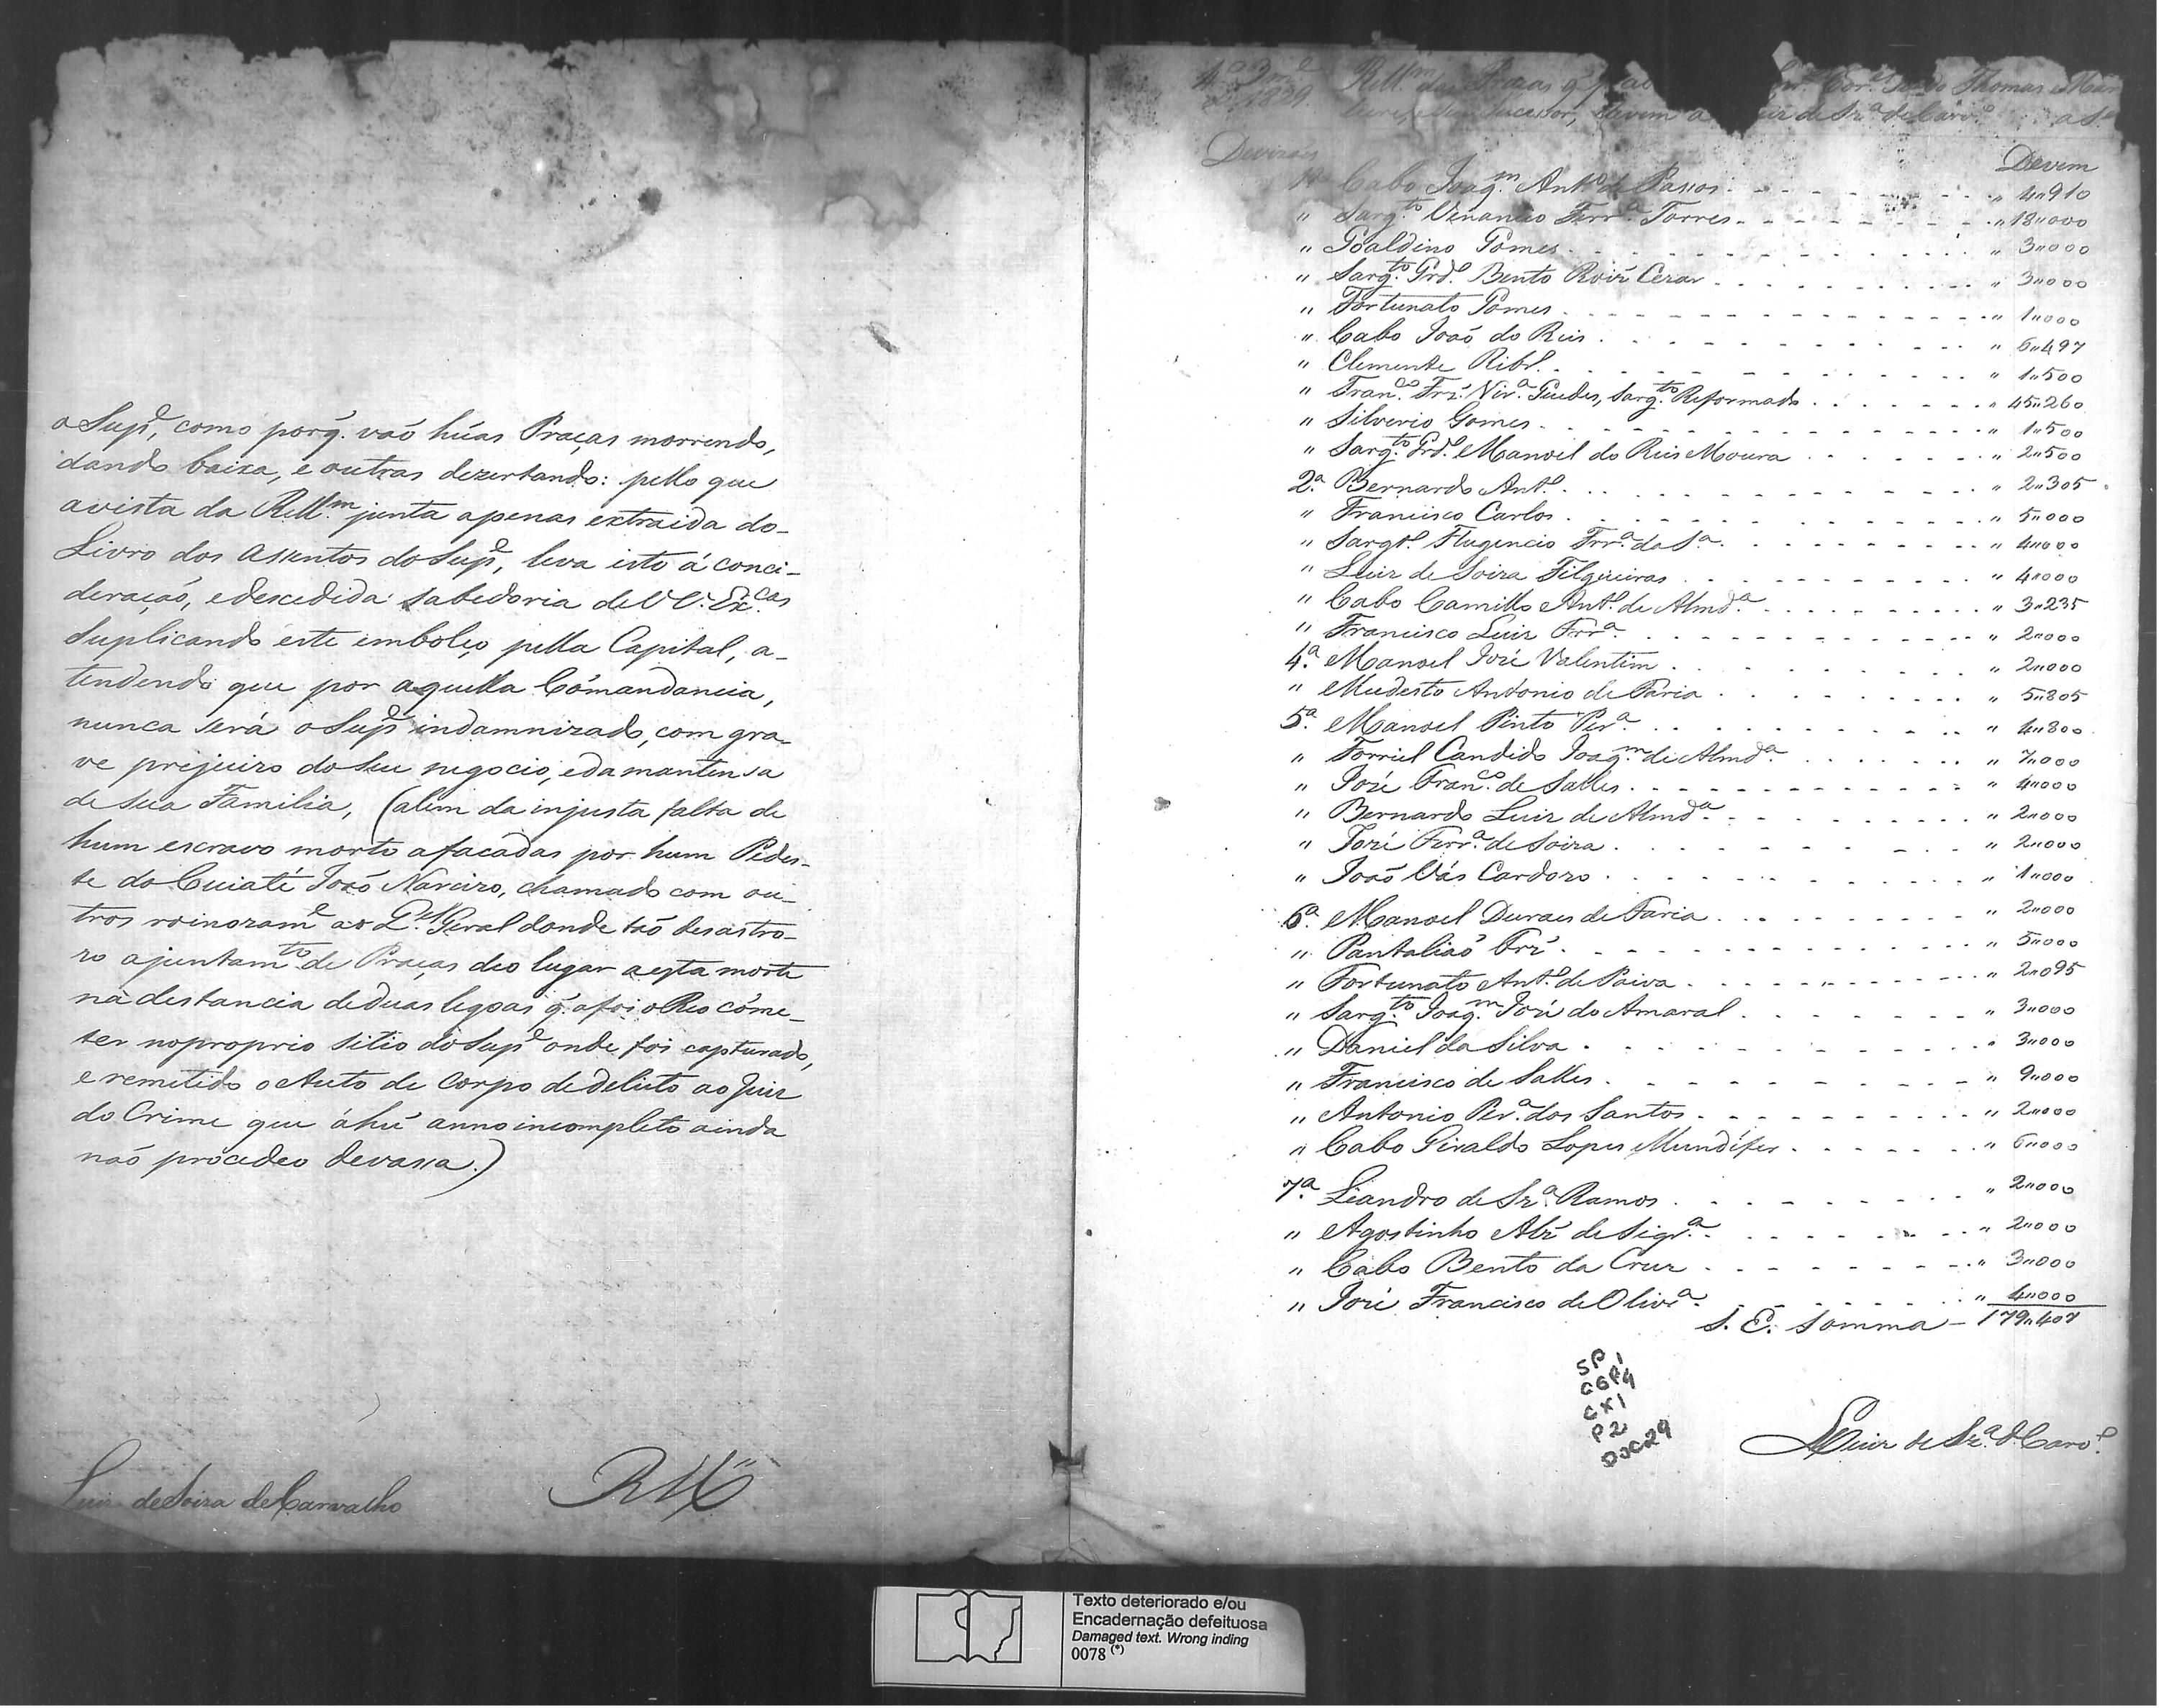 o Sup.e, como porq̃. vaõ húas Praças morrendo,
dando baixa, e outras dezertando: pello que
avista da Rell.m junta apenas extraida do
Livro dos assentos do Sup.e, leva isto á conci-
deraçaõ, e descedida sabedoria de VV. Ex.cas
Suplicando este embolço pella Capital, a-
tendendo que por aquella Cómandancia,
nunca será o Sup.e indamnizado, com gra-
ve prejuizo do seu negocio, e da mantensa
de sua Familia, (alem da injusta falta de
hum escravo morto afacadas por hum Pedes-
te do Cuiaté Joaõ Narcizo, chamado com ou-
tros ao Q.el Geral donde taõ desastro-
zo ajuntam.to de Praças deo lugar a esta morte
na destancia de duas legoas q̃. afoi o Reo cóme-
ter no proprio sitio do Sup.e onde foi capturado,
e remetido o Auto de Corpo de delicto ao Juiz
do Crime que áhú anno incompleto ainda
naõ procedeo devassa.)
Luiz de Soiza de Carvalho
RMce
1839. Rell.m das Praças q̃ Thomas
sucessor, devem a de Sz.a de Carv.o
Devizões Devem
1.a Cabo Joaq.m Ant.o de Passos - - - " 4"910
" Sarg.to Venancio Ferr.a Torres - - - " 18"000
" Goaldino Gomes - - - " 3"000
" Sarg.to Grd.o Bento Roiz Cezar - - - " 3"000
" Fortunato Gomes - - - " 1"000
" Cabo Joaõ do Reis - - - " 6"497
" Clemente Ribr.o - - - " 1"500
" Fran.co Frz. Vir.a Guedes, Sarg.to Reformado - - - " 45"260
" Silverio Gomes - - - " 1"500
" Sarg.to Grd.o Manoel do Reis Moura - - - " 2"500
2.a Bernardo Ant.o - - - " 2"305
" Francisco Carlos - - - " 5"000
" Sargt.o Flugencio Frr.a da S.a - - - " 4"000
" Luiz de Soiza Filgueiras - - - " 4"000
" Cabo Camillo Ant.o de Almd.a - - - " 3"235
" Francisco Luiz Frr.a - - - " 2"000
4.a Manoel José Valentim - - - " 2"000
" Mudesto Antonio de Faria - - - " 5"805
5.a Manoel Pinto Per.a - - - " 4"800
" Forriel Candido Joaq.m de Almd.a - - - " 7"000
" José Fran.co de Salles - - - " 4"000
" Bernardo Luiz de Almd.a - - - " 2"000
" José Ferr.a de Soiza - - - " 2"000
" Joaõ Vás Cardozo - - - " 1"000
6.a Manoel Duraes de Faria - - - " 2"000
" Pantaliaõ Frz. - - - " 5"000
" Fortunato Ant.o de Paiva - - - " 2"095
" Sarg.to Joaq.m José do Amaral - - - " 3"000
" Daniel da Silva - - - " 3"000
" Francisco de Salles - - - " 9"000
" Antonio Per.a dos Santos - - - " 2"000
" Cabo Giraldo Lopes Mundifer - - - " 6"000
7.a Leandro de Sz.a Ramos - - - " 2"000
" Agostinho Alz. de Siqr.a - - - " 2"000
" Cabo Bento da Cruz - - - " 3"000
" José Francisco de Olivr.a - - - " 4"000
S. E. Somma - 179"407
SP 1
CGP4
CX1
P2
DOC29
Luiz de Sz.a d. Carv.o
Texto deteriorado e/ou
Encadernação defeituosa
Damaged text. Wrong inding
0078 (*)